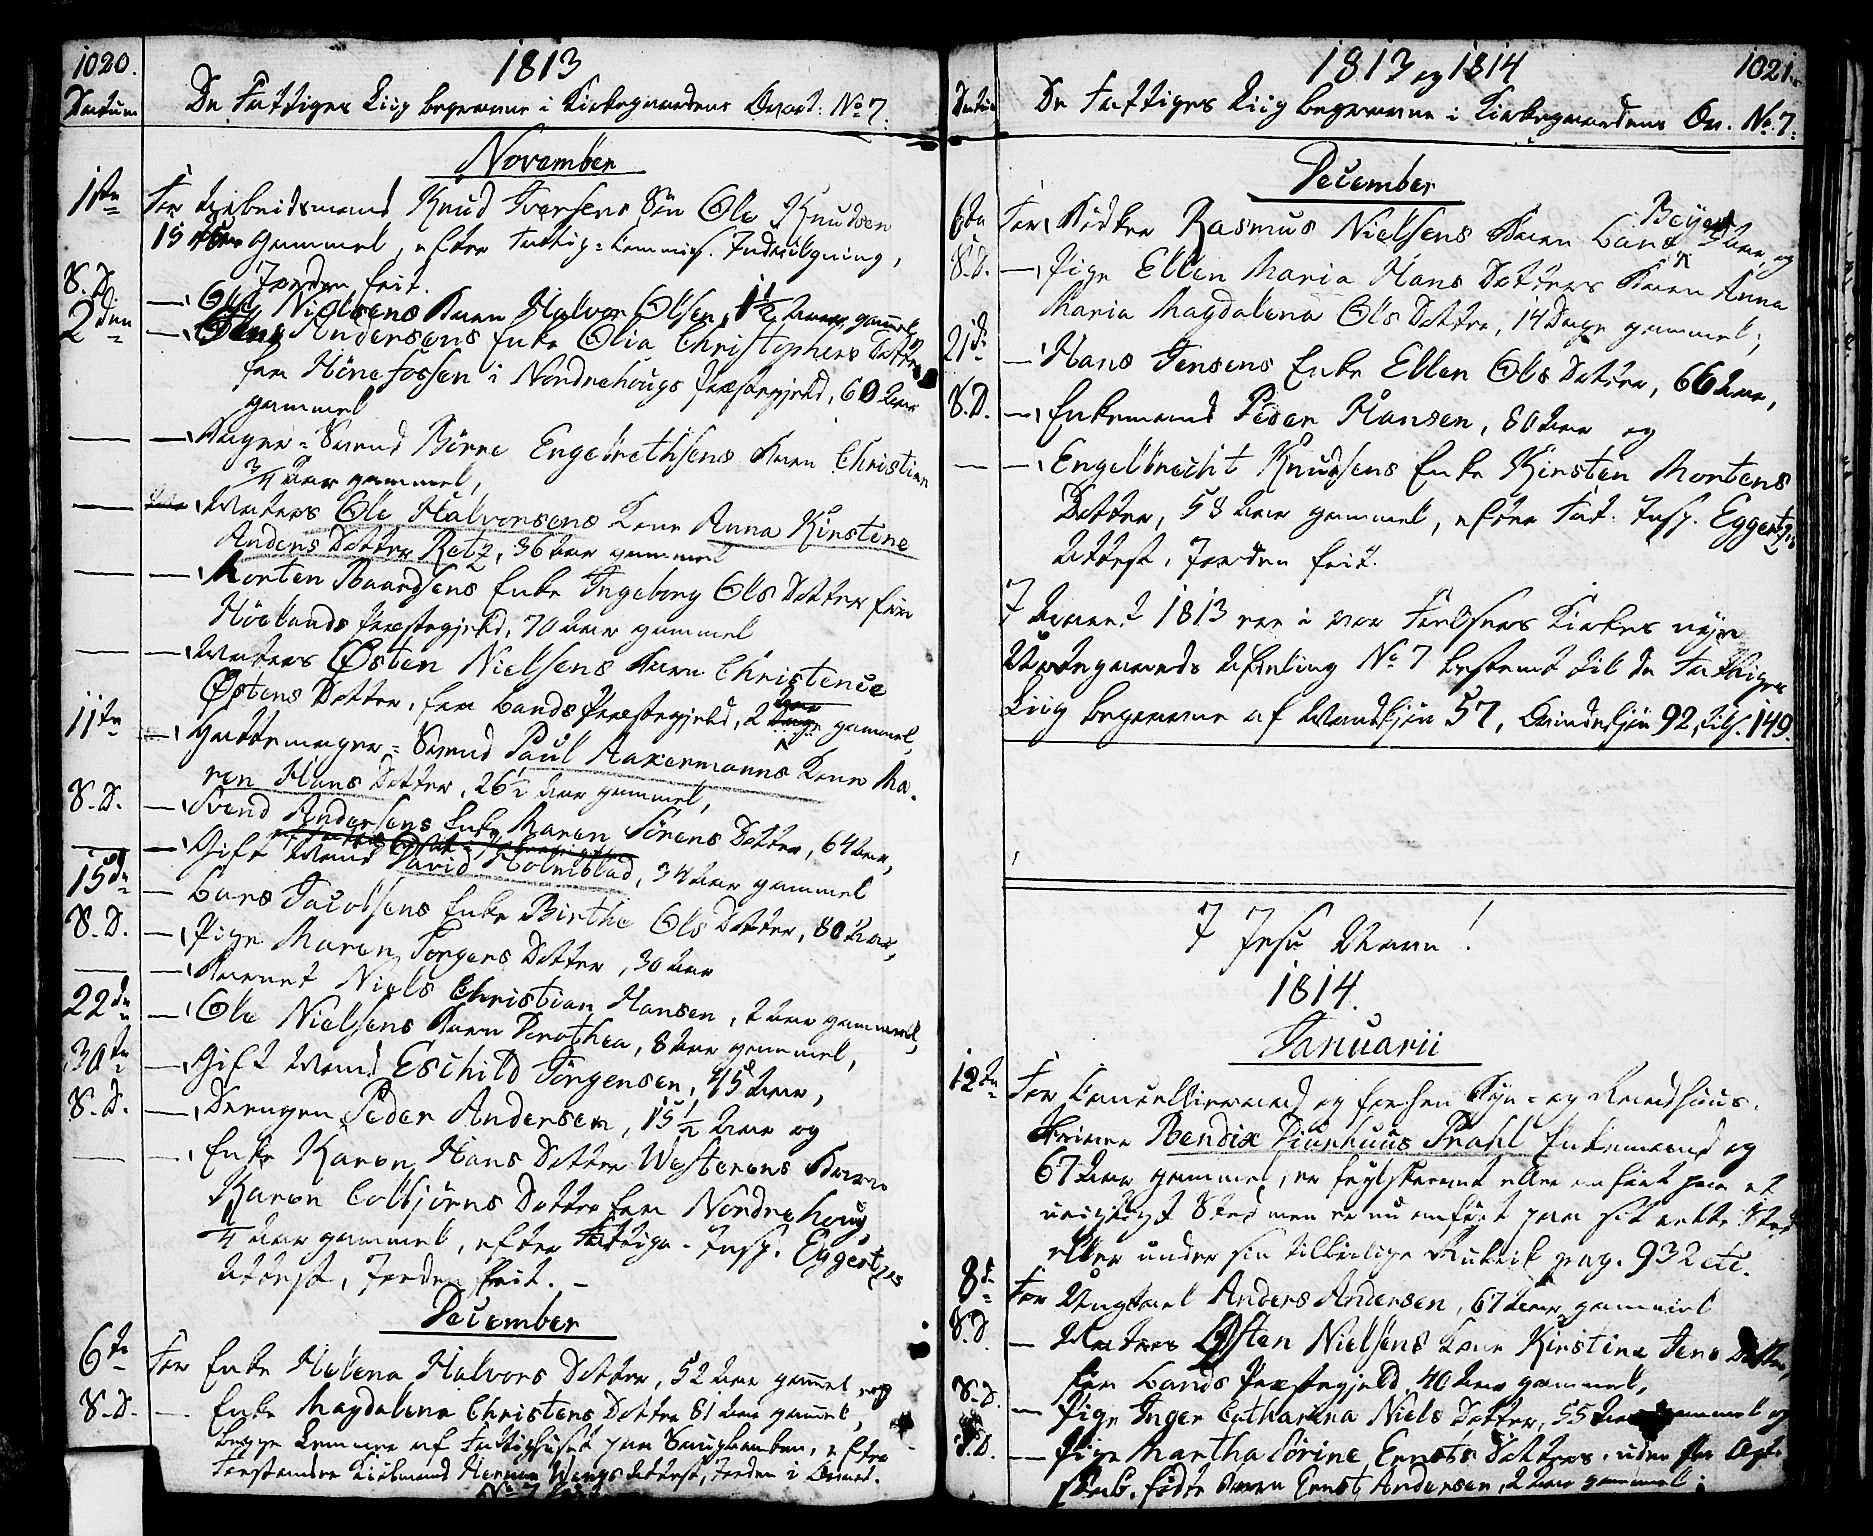 1020.
1813
Datum
De Fattiges Liig begravne i Kirkegaardens Qvart: No 7.
November
1ste For Arbeidsmand Knud Iversens Søn Ole Knudsen
15 Aar Gammel, efter Fattig-Commiss.
Jorden frit.
S.D. — Ole Nielsens Barn Halvor Olsen, 1½ Aar gammel
2den — Andersens Enke Olia Christophers Datter
fra Hönefossen i Nordrehougs Præstegjeld, 60 Aar
gammel
— — Svend Börre Engebrethsens Barn Christian
¾ Aar gammel,
— Matros Ole Halvorsens Kone Anna Kirstine
Anders Datter Retz, 36 Aar gammel
— — Morten Baardsens Enke Ingeborg Ols Datter fra
Hölands Præstegjeld, 70 Aar gammel
— — Matros Østen Nielsens Barn Christence
Østens Datter, fra Lands Præstegjeld, 2 Aar gammel,
11te — Hattemager-Svend Paul Aakermanns Kone Ma-
ren Hans Datter, 26½ Aar gammel,
S.D. — Svend Andersens Enke Maren Sörens Datter, 64 Aar,
— — Gift Mand David Holmblad, 34 Aar gammel
15de — Lars Jacobsens Enke Birthe Ols Datter, 80 Aar,
S.D. — Pige Maren Torgers Datter, 30 Aar
— — Barnet Niels Christian Hansen, 2 Aar gammel,
22de — Ole Nielsens Barn Dorothea, 8 Aar gammel,
30te — Gift Mand Eschild Jörgensen, 45 Aar,
S.D. — Drengen Peder Andersen, 15½ Aar og
— — Enke Karen Hans Datter Westerens Barn
Karen Colbjörns Datter fra Nordrehoug,
¼ Aar gammel, efter Fattige-Insp. Eggertzes
Attest, Jorden frit. —
December
6te For Enke Helena Halvors Datter, 52 Aar gammel og
S.D. — Enke Magdalena Christens Datter 81 Aar gammel,
begge Lemmer af Fattighuset paa Sangbanken, efter
Forstander Kiöbmand Herman Wangs Attest, Jorden i Qvart.
No 7 frit
1813 og 1814
1021.
Datum
De Fattiges Liig begravne i Kirkegaardens Qv. No. 7.
December
6te For Rasmus Nielsens Barn Lars Beyer Aar, og
S.D. — Pige Ellen Maria Hans Datters Barn Anna
Maria Magdalena Ols Datter, 14 Dage gammel,
21de — Hans Jensens Enke Ellen Ols Datter, 66 Aar,
S.D. — Enkemand Peder Hansen, 80 Aar og
— — Engelbrecht Knudsens Enke Kirsten Mortens
Datter, 58 Aar gammel, efter Fat. Insp. Eggertzes
Attest, Jorden frit.
I Aaret 1813 ere i vor Frelsers Kirkes nye
Urtegaards Afdeling No 7 bestemt til de Fattiges
Liig begravne af Mandkjön 57, Qvindekjön 92, tils. 149.
I Jesu Navn!
1814.
Januarii
12te For Cancellieraad og forhen Tugt- og Raadhuus-
Bendix Diurhuus Prahl Enkemand og
67 Aar gammel, er feylskrevet eller anfört paa et
urigtigt Sted men er nu anfört paa sit rette Sted
eller under sin tilbörlige Rubrik pag. 932 etc.
8de For Anders Andersen, 67 Aar gammel
S.D. — Matros Østen Nielsens Kone Kirstine Jens Datter,
fra Lands Præstegjeld 40 Aar gammel,
S.D. — Pige Inger Catharina Niels Datter, 55 Aar gammel og
S.D. — Pige Martha Sörine Ernsts Datters, uden for Ægte-
skab, födte Barn Ernst Andersen, 2 Aar gammel,